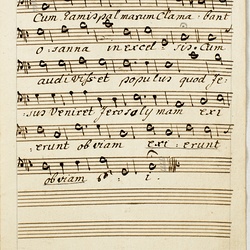 Cum ramis palmarum Clama: bant
O: sanna in excel: sis. Cum
audivisset populus quod Je:
sus veniret Jerosolymam exi
erunt obviam exi: erunt
obviam i.